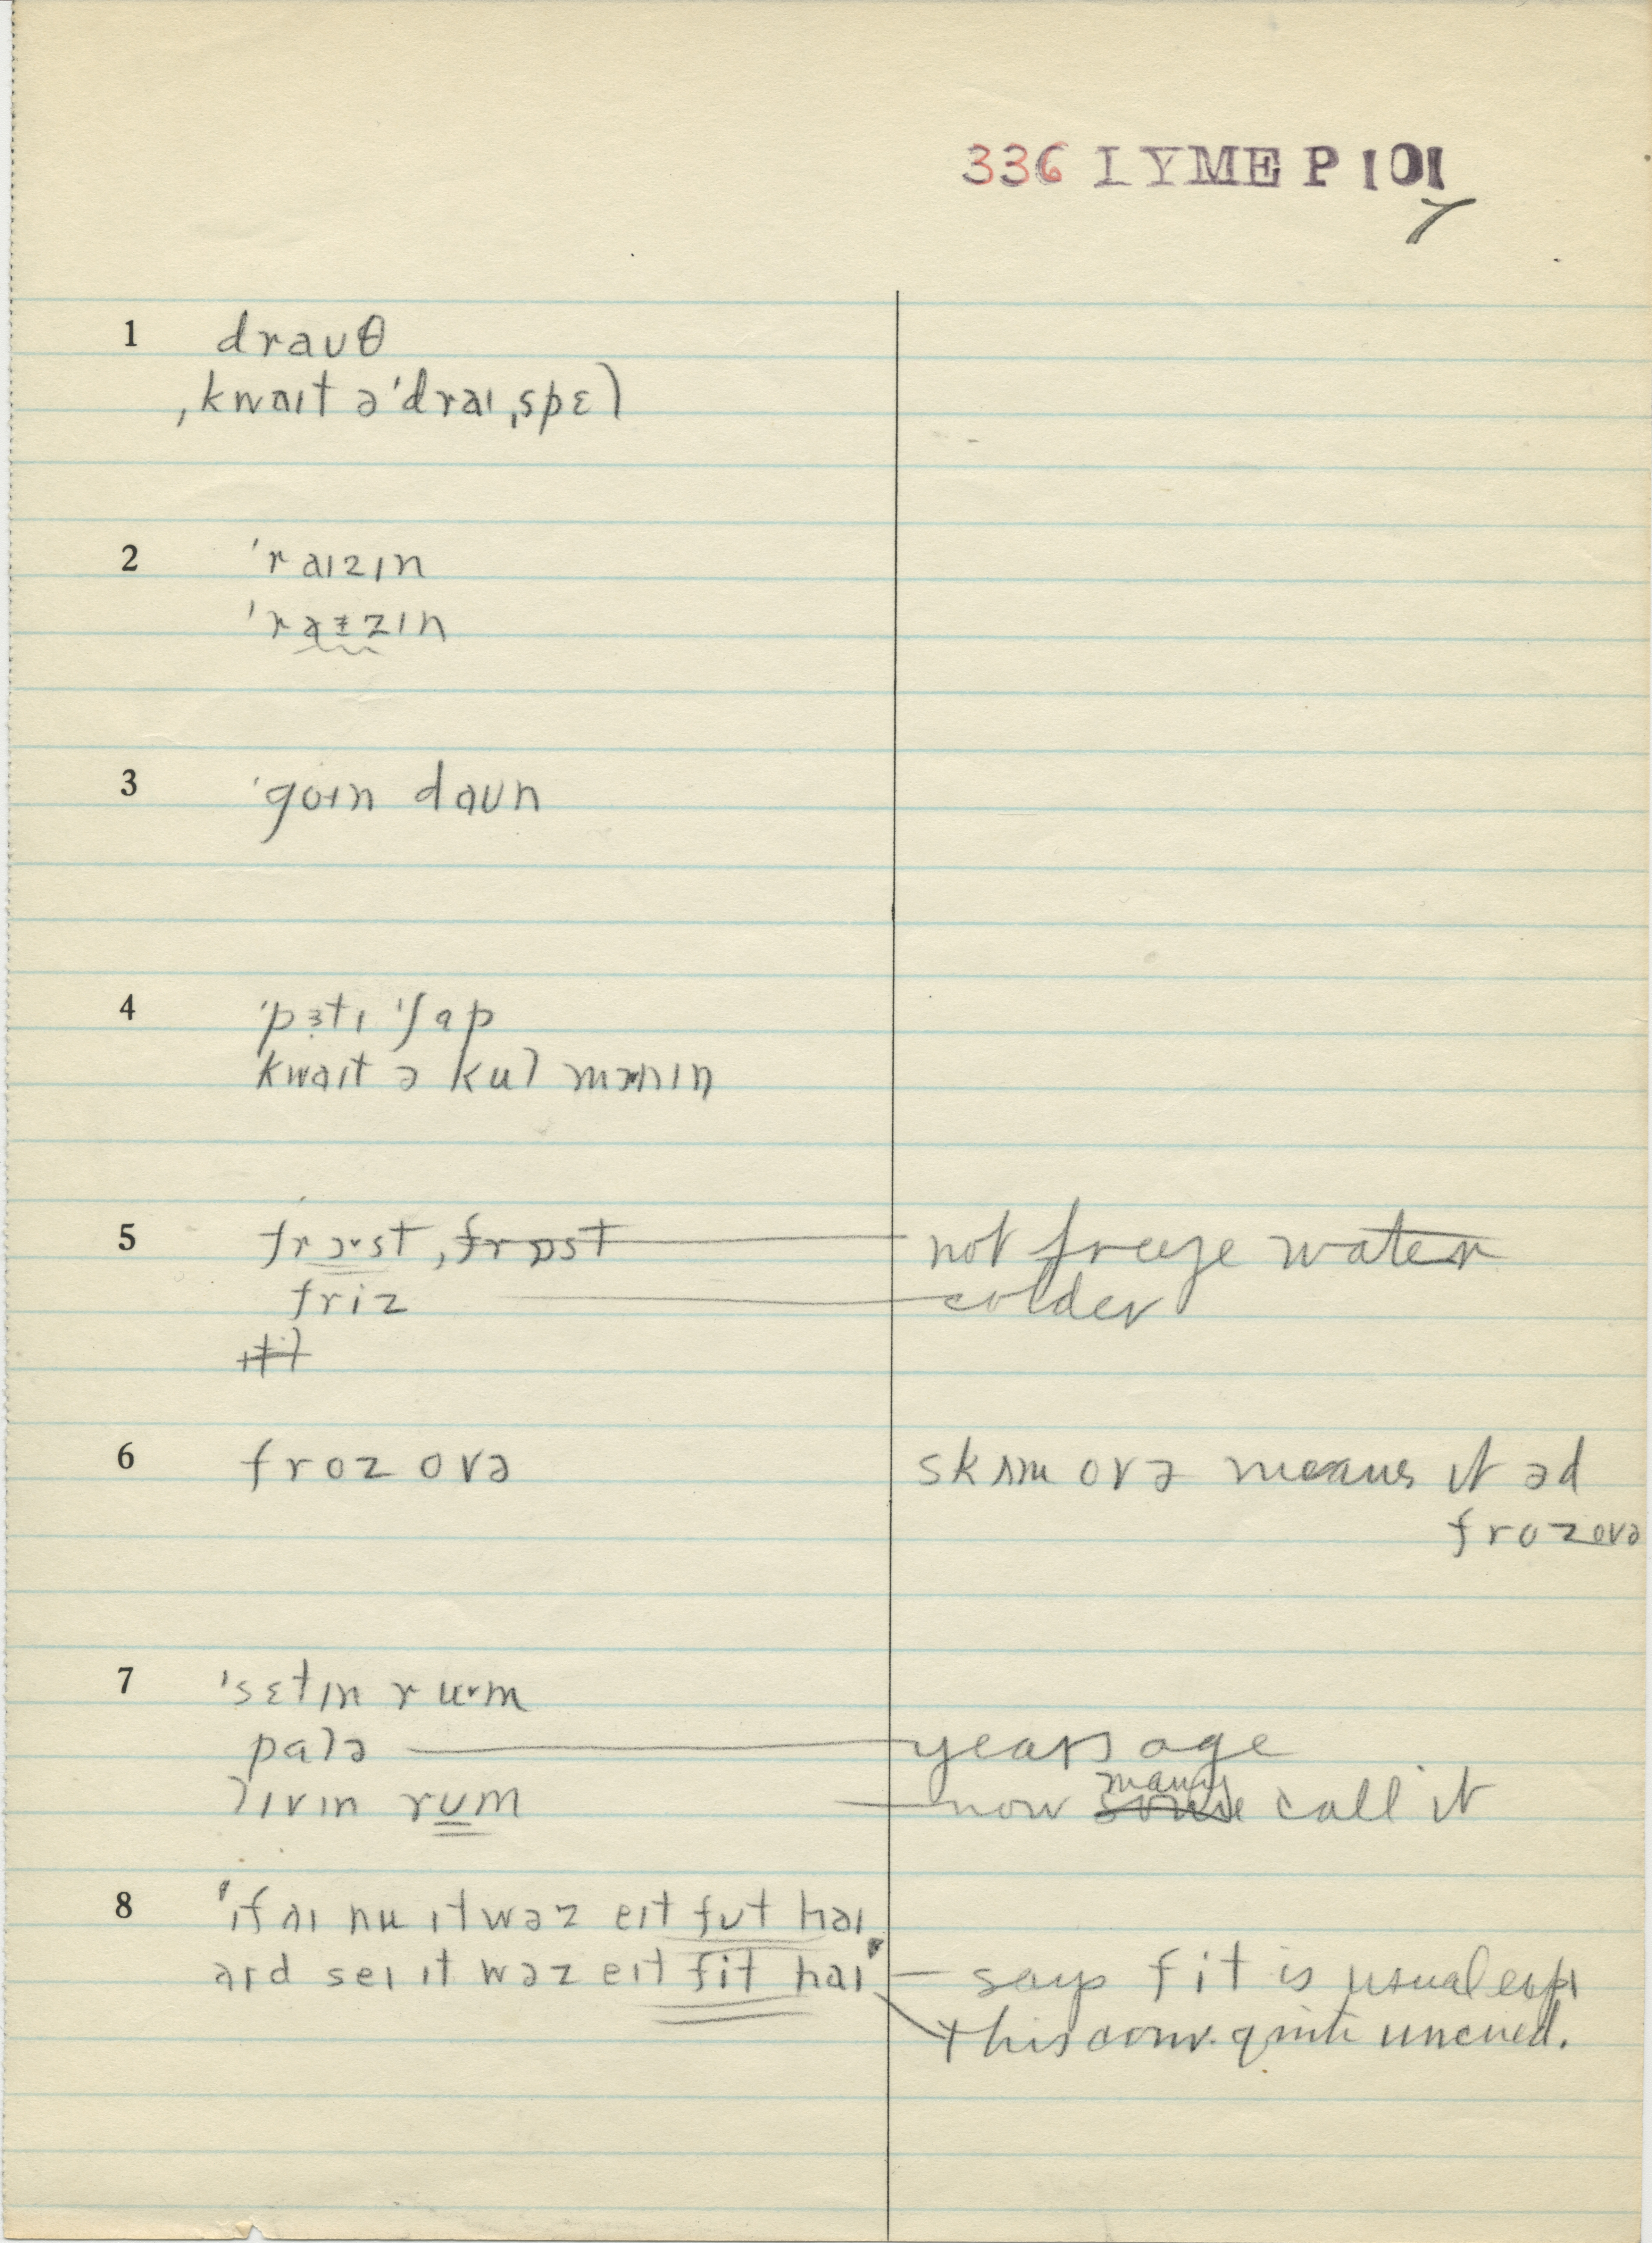 336 LYME P 101
7
1 drauθ
ˌkwaɪt ə ˈdraɪ ˌspɛl
2 ˈraɪzɪn
ˈraɪzɪn
3 ˈgoɪn daun
4 ˈpɜtɪ ˈʃap
kwaɪt ə kul mɔnɪn
5 frɔst, frɒst not freeze water
friz colder
6 froz ovə skɪm ovə means it əd
froz ovə
7 ˈsɛtɪn rum
palə years ago
lɪvɪn rum now many some call it
8 "ɪf aɪ nu ɪt wəz eɪt fut haɪ
aɪd seɪ ɪt wəz eɪt fit haɪ" says fit is usual exp
this conv. quite uncued.